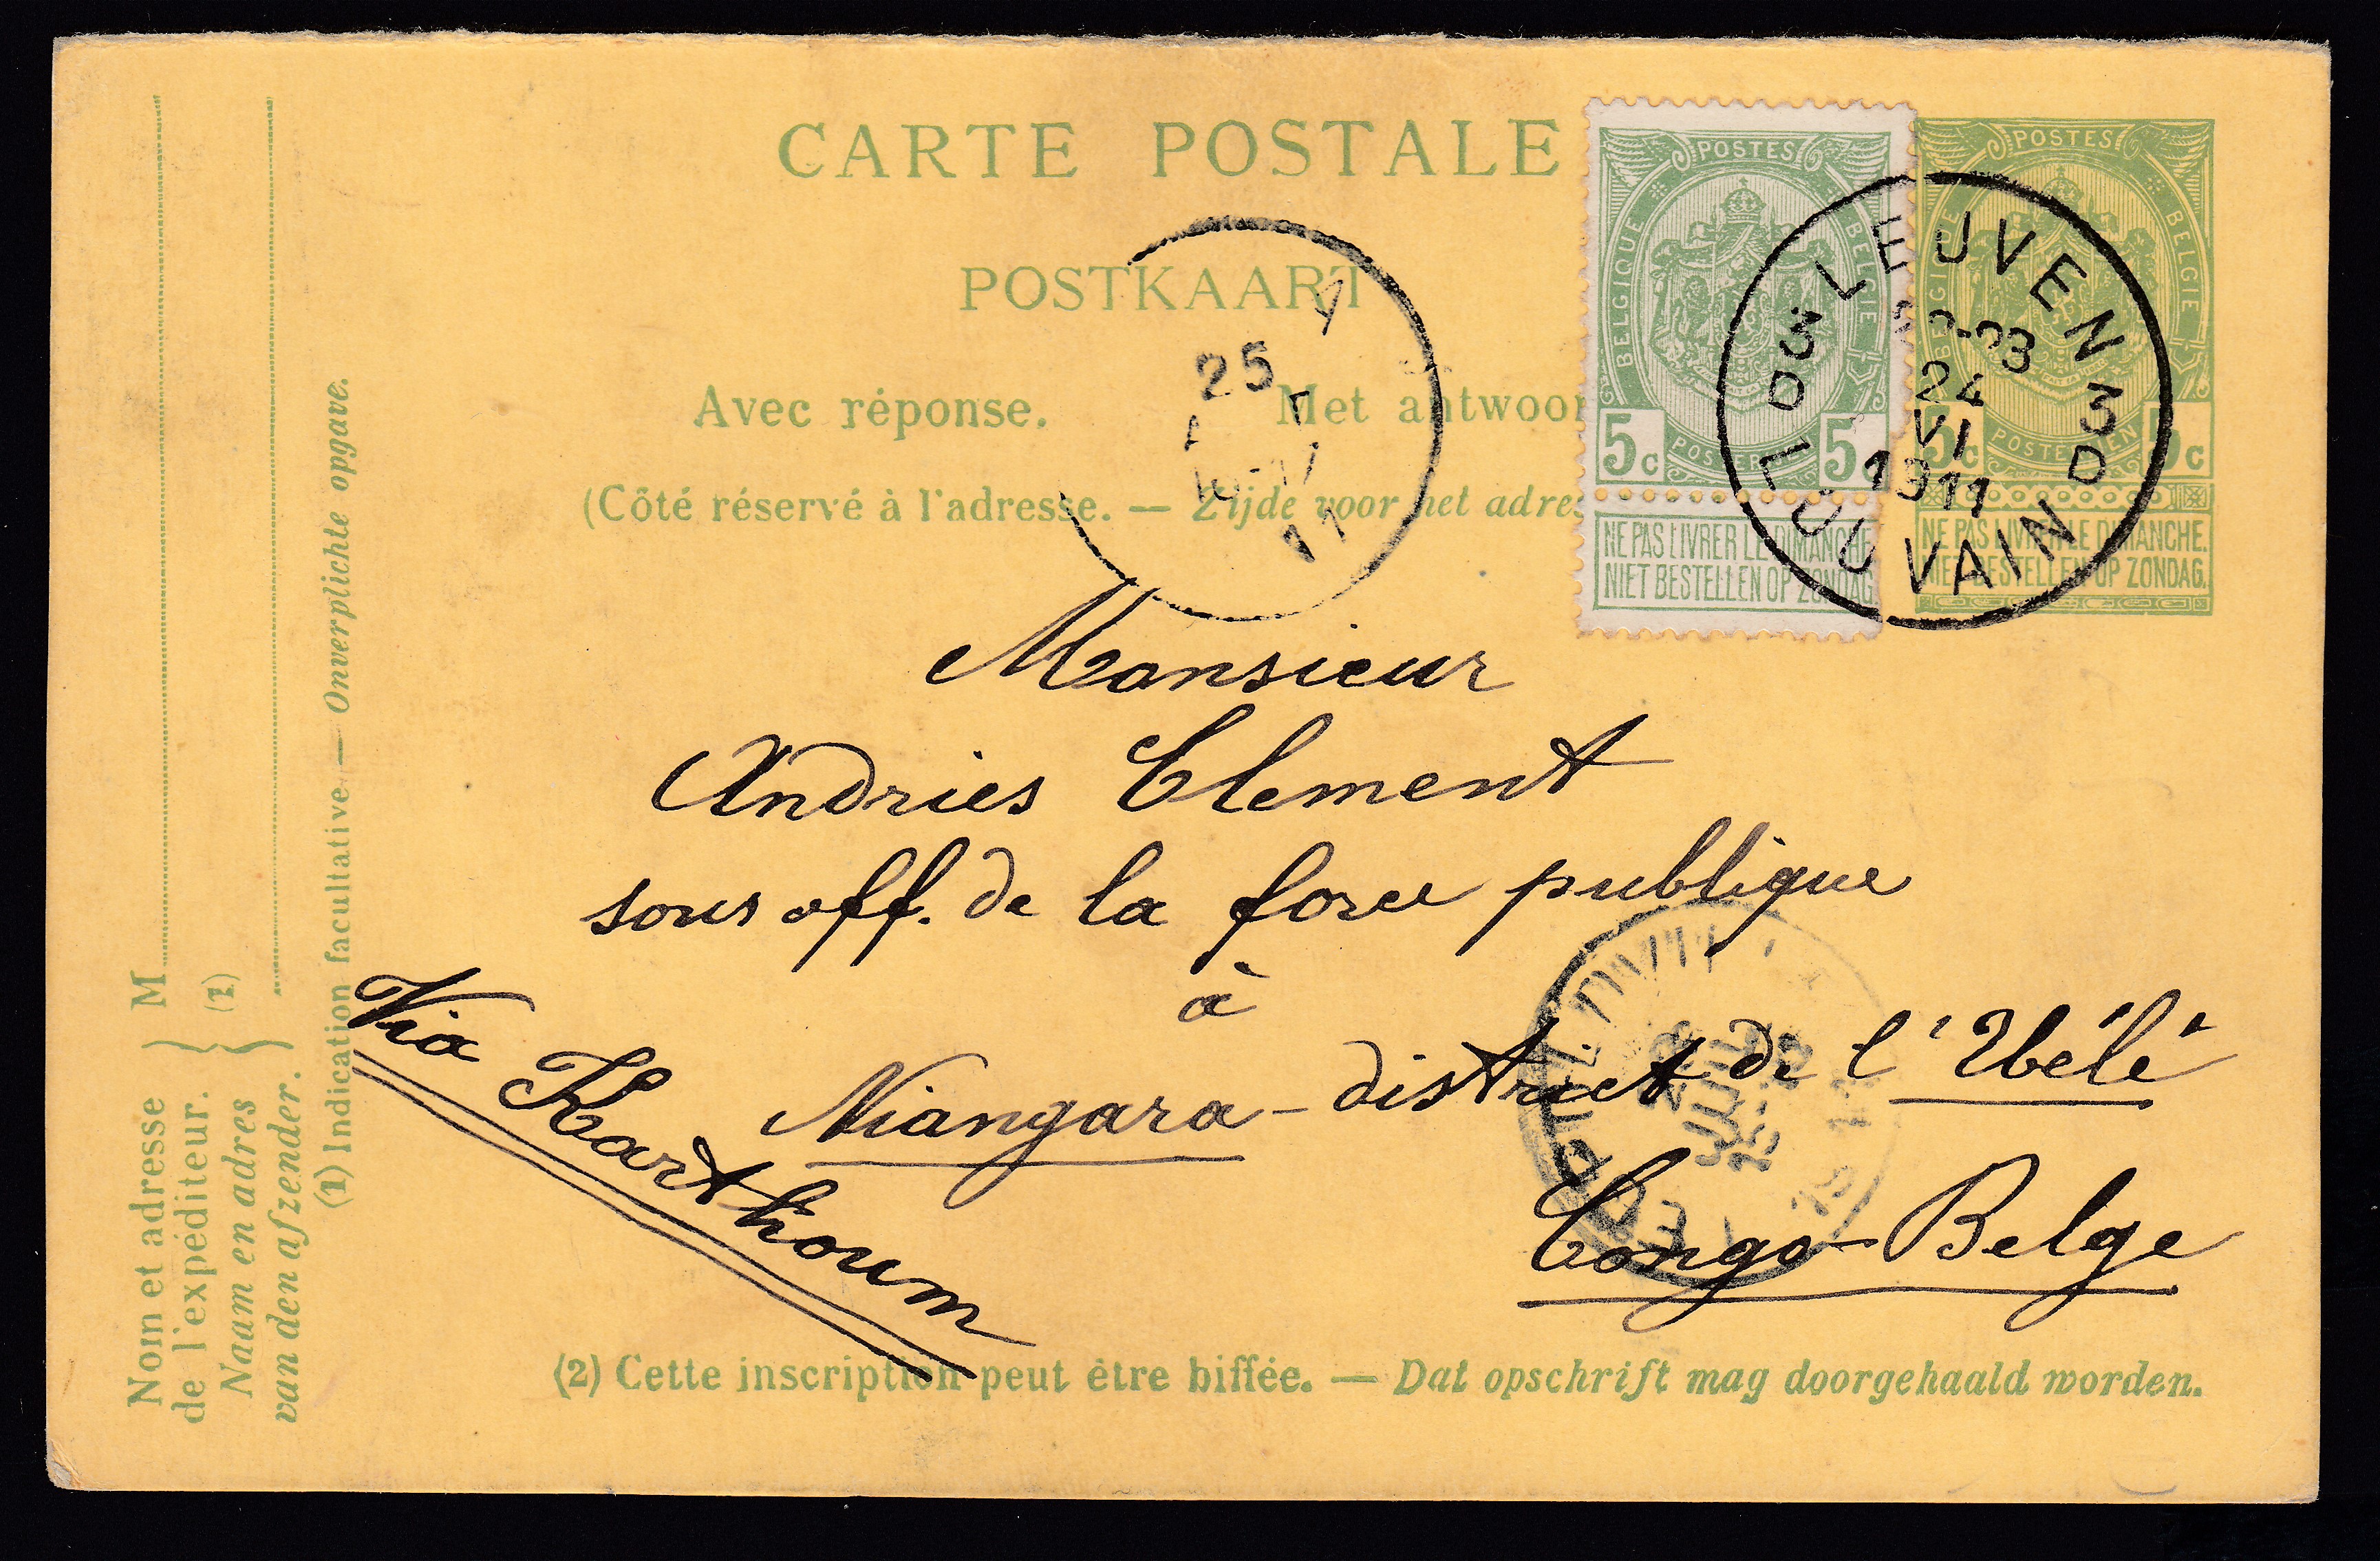 CARTE POSTALE
POSTKAART
Avec réponse. Met antwoor
(Côté réservé à l'adresse. — Zijde voor het adres
POSTES
BELGIQUE BELGIE
5c POSTERIJEN 5c
NE PAS LIVRER LE DIMANCHE
NIET BESTELLEN OP ZONDAG
POSTES
BELGIQUE BELGIE
5c POSTERIJEN 5c
NE PAS LIVRER LE DIMANCHE.
NIET BESTELLEN OP ZONDAG.
LEUVEN
3D 3D
24
VI
1911
LOUVAIN
25
11
Monsieur
Andries Clement
sous off. de la force publique
à
Niangara - district de l'Uélé
Congo-Belge
Via Karthoum
M
(1)
Nom et adresse
de l'expéditeur.
Naam en adres
van den afzender.
(1) Indication facultative. — Onverplichte opgave.
(2) Cette inscription peut être biffée. — Dat opschrift mag doorgehaald worden.